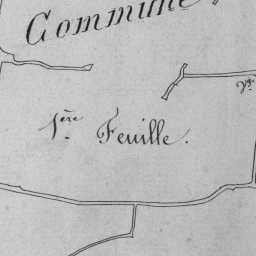 Commune
1ère Feuille.